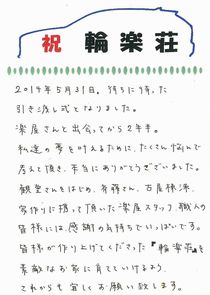 祝 輪楽荘
2014年5月31日。待ちに待った
引き渡し式となりました。
楽屋さんと出会ってから2年半。
私達の夢を叶えるために、たくさん悩んで
考えて頂き、本当にありがとうございました。
観堂さんをはじめ、斉藤さん、古居棟梁、
家作りに携って頂いた楽屋スタッフ、職人の
皆様には、感謝の気持ちでいっぱいです。
皆様が作り上げてくださった『輪楽荘』を
素敵なお家に育てていけるよう、
これからも宜しくお願い致します。